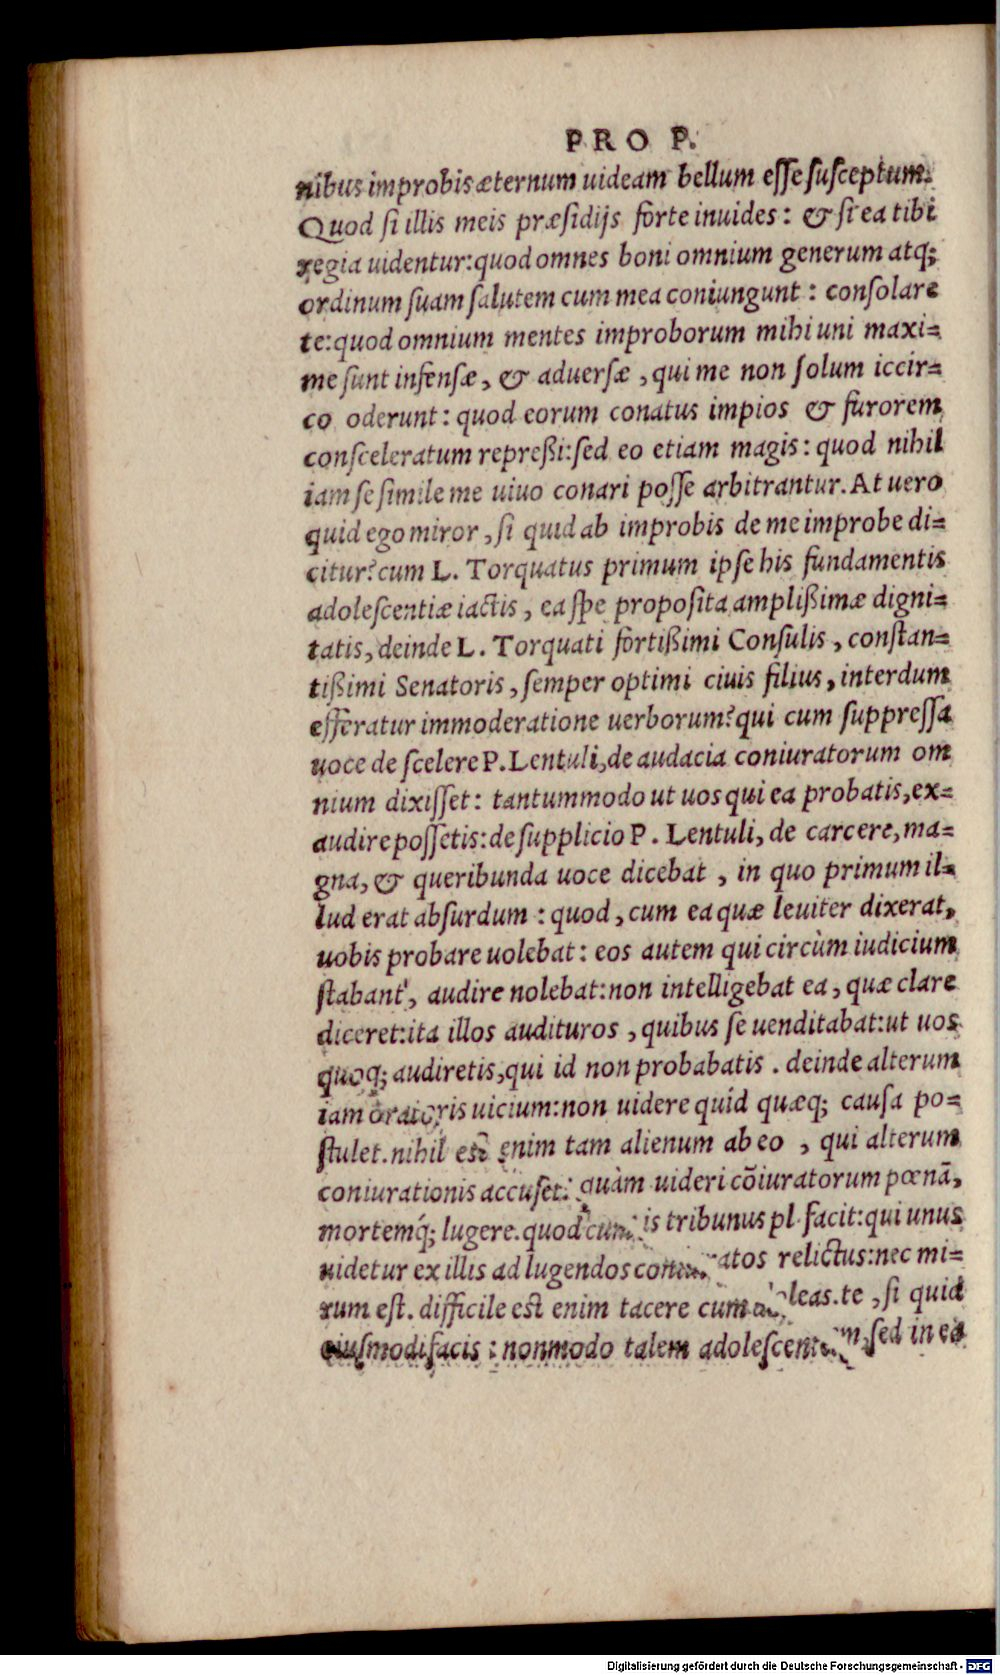 PRO P.
nibus improbis æternum uideam bellum esse susceptum.
Quod si illis meis præsidijs forte inuides: & si ea tibi
regia uidentur: quod omnes boni omnium generum atq;
ordinum suam salutem cum mea coniungunt: consolare
te: quod omnium mentes improborum mihi uni maxi=
me sunt infensæ, & aduersæ, qui me non solum iccir=
co oderunt: quod eorum conatus impios & furorem
consceleratum repreßi: sed eo etiam magis: quod nihil
iam se simile me uiuo conari posse arbitrantur. At uero
quid ego miror, si quid ab improbis de me improbe di=
citur? cum L. Torquatus primum ipse his fundamentis
adolescentiæ iactis, ea spe proposita amplißimæ digni=
tatis, deinde L. Torquati fortißimi Consulis, constan=
tißimi Senatoris, semper optimi ciuis filius, interdum
efferatur immoderatione uerborum? qui cum suppressa
uoce de scelere P. Lentuli, de audacia coniuratorum om
nium dixisset: tantummodo ut uos qui ea probatis, ex=
audire possetis: de supplicio P. Lentuli, de carcere, ma=
gna, & queribunda uoce dicebat, in quo primum il=
lud erat absurdum: quod, cum ea quæ leuiter dixerat,
uobis probare uolebat: eos autem qui circùm iudicium
stabant, audire nolebat: non intelligebat ea, quæ clare
diceret: ita illos audituros, quibus se uenditabat: ut uos
quoq; audiretis, qui id non probabatis. deinde alterum
iam oratoris uicium: non uidere quid quæq; causa po=
stulet. nihil est enim tam alienum ab eo, qui alterum
coniurationis accuset: quàm uideri cōiuratorum pœnā,
mortemq́; lugere. quod cum is tribunus pl. facit: qui unus
uidetur ex illis ad lugendos relictus: nec mi=
rum est. difficile est enim tacere cum doleas. te, si quid
eiusmodi facis: non modo talem adolescentem, sed in ea
Digitalisierung gefördert durch die Deutsche Forschungsgemeinschaft - DFG